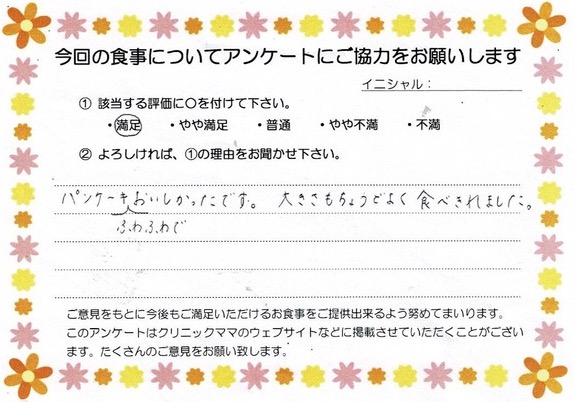 今回の食事についてアンケートにご協力をお願いします
イニシャル:
① 該当する評価に〇を付けて下さい。
・満足 ・やや満足 ・普通 ・やや不満 ・不満
② よろしければ、①の理由をお聞かせ下さい。
パンケーキおいしかったです。 大きさもちょうどよく 食べきれました。
ふわふわで
ご意見をもとに今後もご満足いただけるお食事をご提供出来るよう努めてまいります。
このアンケートはクリニックママのウェブサイトなどに掲載させていただくことがござい
ます。たくさんのご意見をお願い致します。